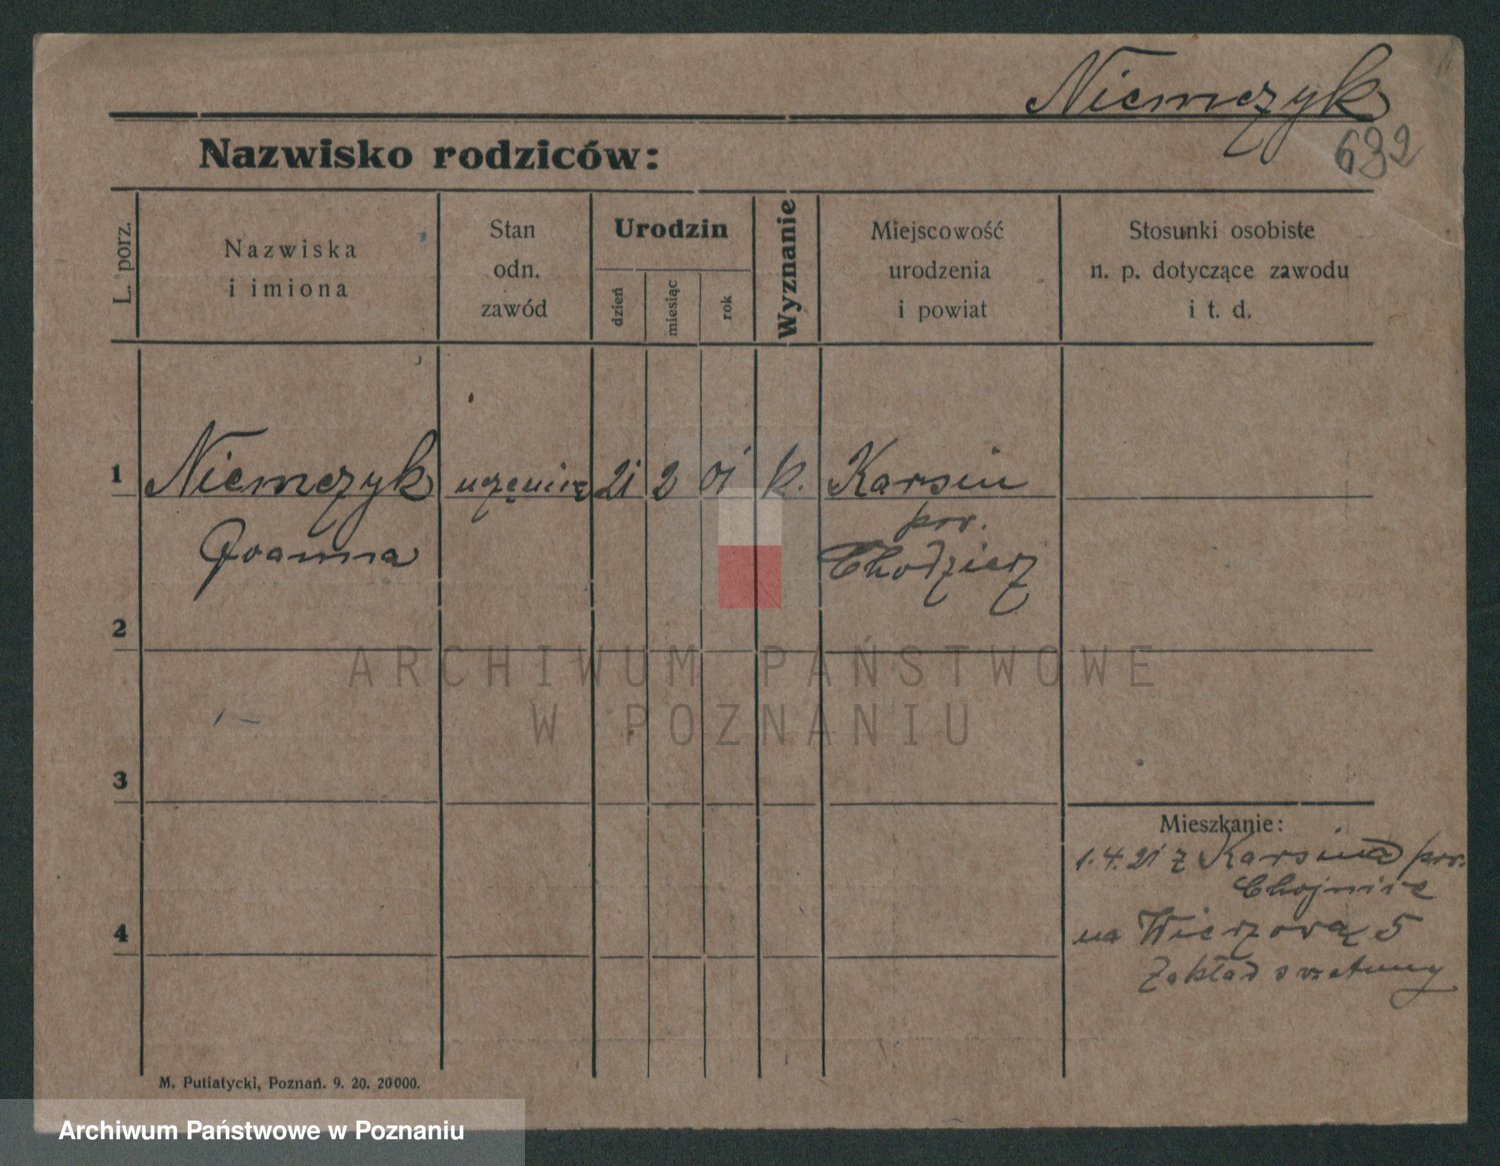 Niemczyk
632
Nazwisko rodziców:
L. porz.
Nazwiska
i imiona
Stan
odn.
zawód
Urodzin
dzień
miesiąc
rok
Wyznanie
Miejscowość
urodzenia
i powiat
Stosunki osobiste
n. p. dotyczące zawodu
i t. d.
1 Niemczyk 21 2 01 k. Karsin
Joanna
pow.
Chodzierz
2
ARCHIWUM PAŃSTWOWE
W POZNANIU
3
Mieszkanie:
1.4.21 z Karsina pow.
Chojnice
4
na Wieczorną 5
Zakład
M. Putiatycki, Poznań. 9. 20. 20000.
Archiwum Państwowe w Poznaniu